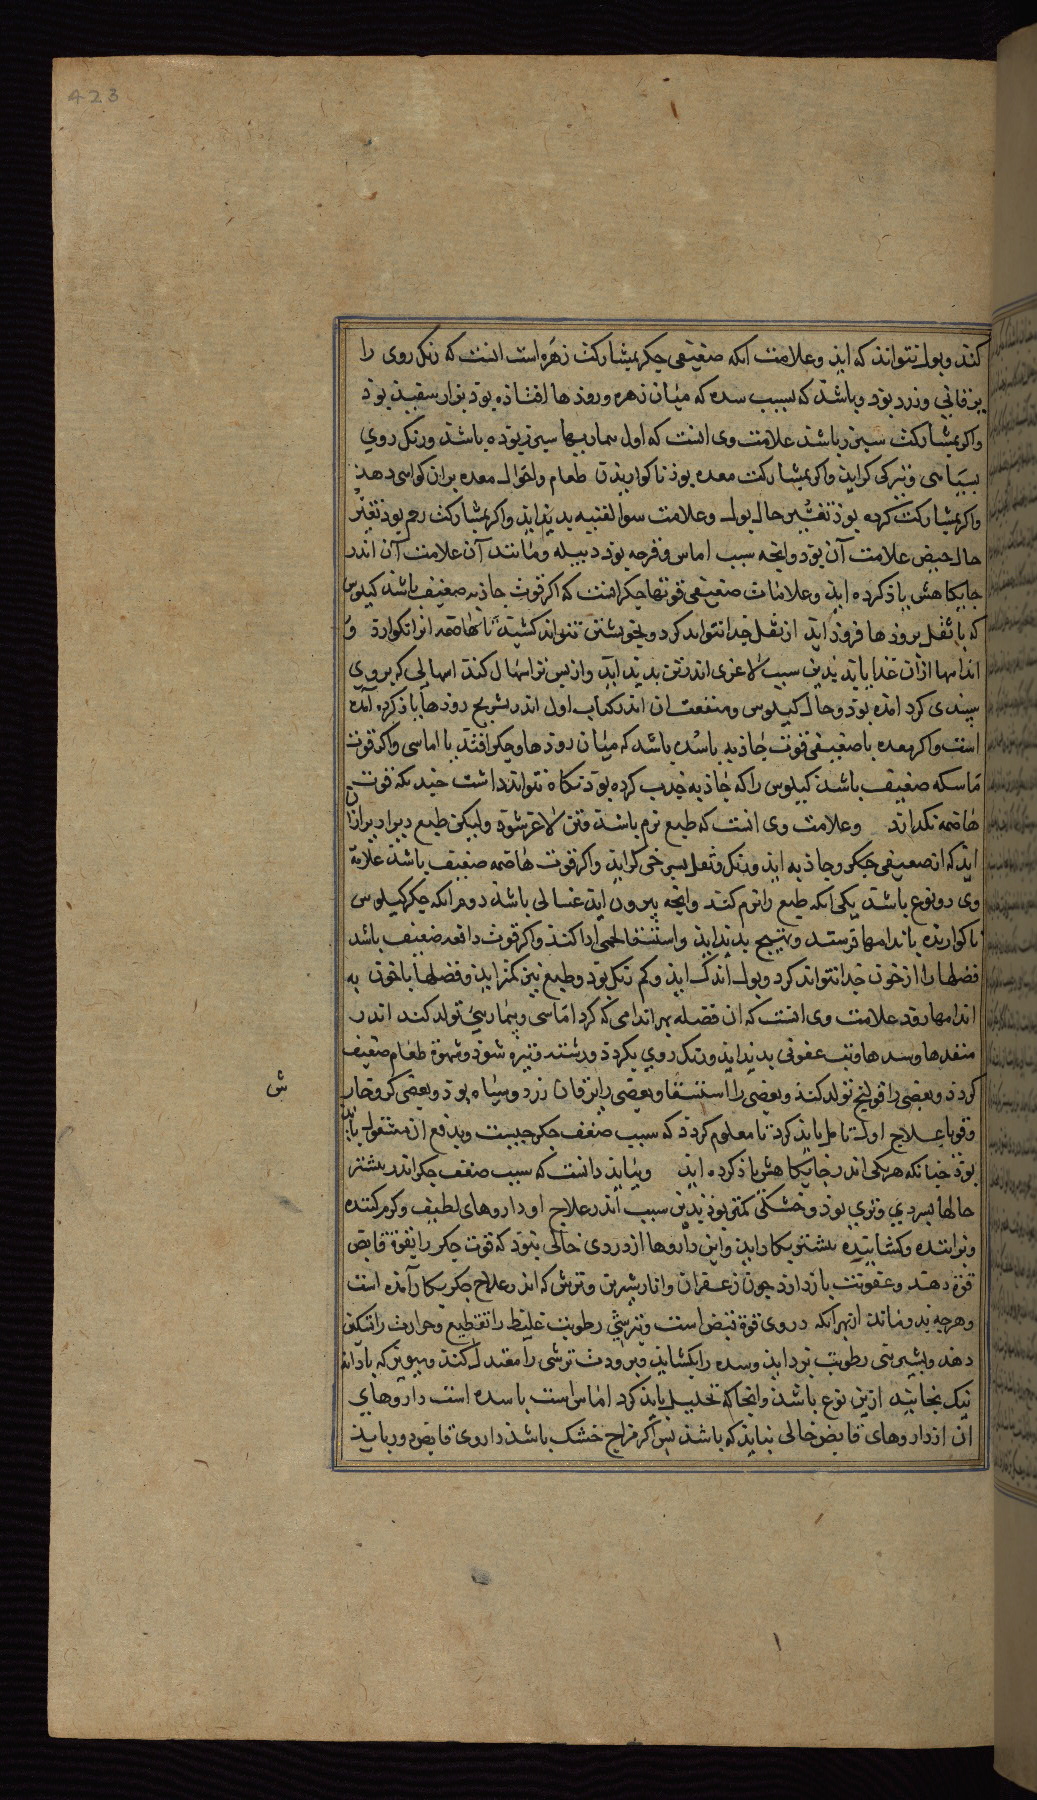 423
کند و بول نتواند که اید و علامت آنکه ضعیفی جگر بمشارکت زهره است انست که رنک روی را
یرقانی و زرد بود و باشد که بسبب سده که میان زهره و روذها افتاذه بوذ براز سفید بوذ
واکر بمشارکت سپرز باشد علامت وی انست که اول بیماریها سپرز بوده باشد و رنک روی
بسیاهی و تیرکی کراید واکر بمشارکت معده بوذ ناکواریدن طعام و احوال معده بران کواهی دهد
واکر بمشارکت کرده بوذ تغییر حال بول و علامت سوالقنیه پدید اید واکر بمشارکت رحم بوذ تغیر
حال حیض علامت آن بود و انچه سبب اماس و قرحه بوذ دبیله و مانند آن علامت آن اندر
جایکاهش یاذ کرده اید و علامات ضعیفی قوتها جکر انست که اکر قوت جاذبه ضعیف باشد کیلوس
که با ثفل بروذها فروذ آید از ثفل جدا نتواند کرد و بخویشتن نتواند کشید تا هاضمه انرا نکوارد و
اندامها ازان غذا یابد بدین سبب لاغری اندر تن پدید اید و از پس تر اسهال کند اسهالی که بروی
سپیدی کرد امده بود و حال کیلوس و منفعت ان اندر کتاب اول اندر تشریح روذها یاذ کرده آمده
است واکر معده با ضعیفی قوت جاذبه با سده باشد که میان روذها و جکر افتد یا اماسی واکر قوت
ماسکه ضعیف باشد کیلوس را که جاذبه جذب کرده بوذ نکاه نتواند داشت چندنکه قوت
هاضمه نکدارد و علامت وی انست که طبع نرم باشد و تن لاغر شود ولیکن طبع دیرادیر ازان
اید که از ضعیفی جکر و جاذبه اید و رنک و ثفل بسرخی کراید واکر قوت هاضمه ضعیف باشد علامة
وی دو نوع باشد یکی انکه طبع را نرم کند و انچه بیرون اید غسالی باشد دوم انکه جکر کیلوس
ناکواریده باندامها فرستد و تهیج پدید اید و استسقا لحمی ادا کند واکر قوت دافعه ضعیف باشد
فضلها را از خون جدا نتواند کرد و بول اندک اید و کم رنک بوذ و طبع نیز کمتر اید و فضلها با خون به
اندامها رود علامت وی انست که ان فضله بهر اندامی که کرد اماسی و بیماریی تولد کند اندر
منفذها و سدها و تب عفونی پدید اید و رنک روی بکردد و رشتد و تیره شود و شهوة طعام ضعیف
کردد و بعضی را قولنج تولد کند و بعضی را استسقا و بعضی را یرقان زرد و سیاه بوذ و بعضی کر و خار
و قوبا علاج اول تامل باید کرد تا معلوم کردد که سبب ضعف جکر چیست و بدفع ان مشغول باید
بوذ چنانکه هر یکی اندر جایکاهش یاذ کرده اید و بباید دانست که سبب ضعف جکر اندر بیشتر
حالها سردی و تری بوذ و خشکی کمتر بوذ بدین سبب اندر علاج او داروهای لطیف و کرم کننده
و پزاننده و کشاینده بیشتر بکار اید و این داروها از داروی خالی نبود که قوت جکر را بقوة قابض
قوة دهد و عفونت بازدارد چون زعفران و انار شیرین و ترش که اندر علاج جکر بکار آمده است
و هرچه بدو ماند از بهر انکه در وی قوة قبض است و بترشی رطوبت غلیظ را تقطیع و حرارت را تسکین
دهد و بشیرینی رطوبت بزداید و سده را بکشاید و برودت ترشی را معتدل کند و مویز که با دانه
نیک بخایند ازین نوع باشد و انجا که تحلیل باید کرد اماس است یا سده است داروهای
ان از داروهای قابض خالی نباید که باشد پس اکر مزاج خشک باشد داروی قابض دور باید
ش